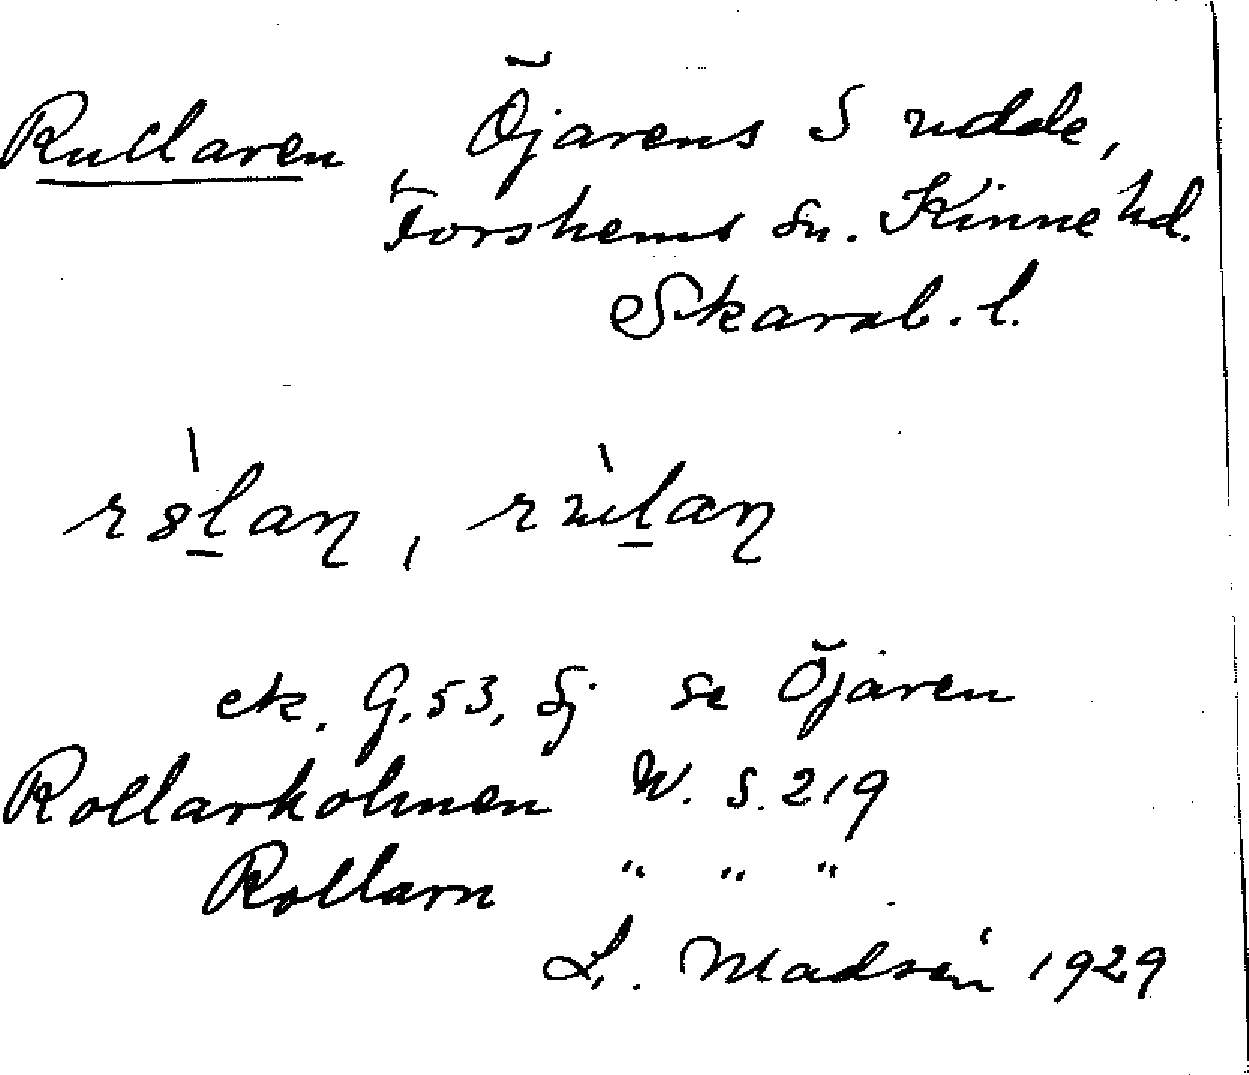 Rullaren Öjarens S udde,
Forshems sn. Kinne hd.
Skarab. l.
ek. G. 53, Sj se Öjaren
Rollarholmen W. S. 219
Rollarn " " "
L. Madsén 1929